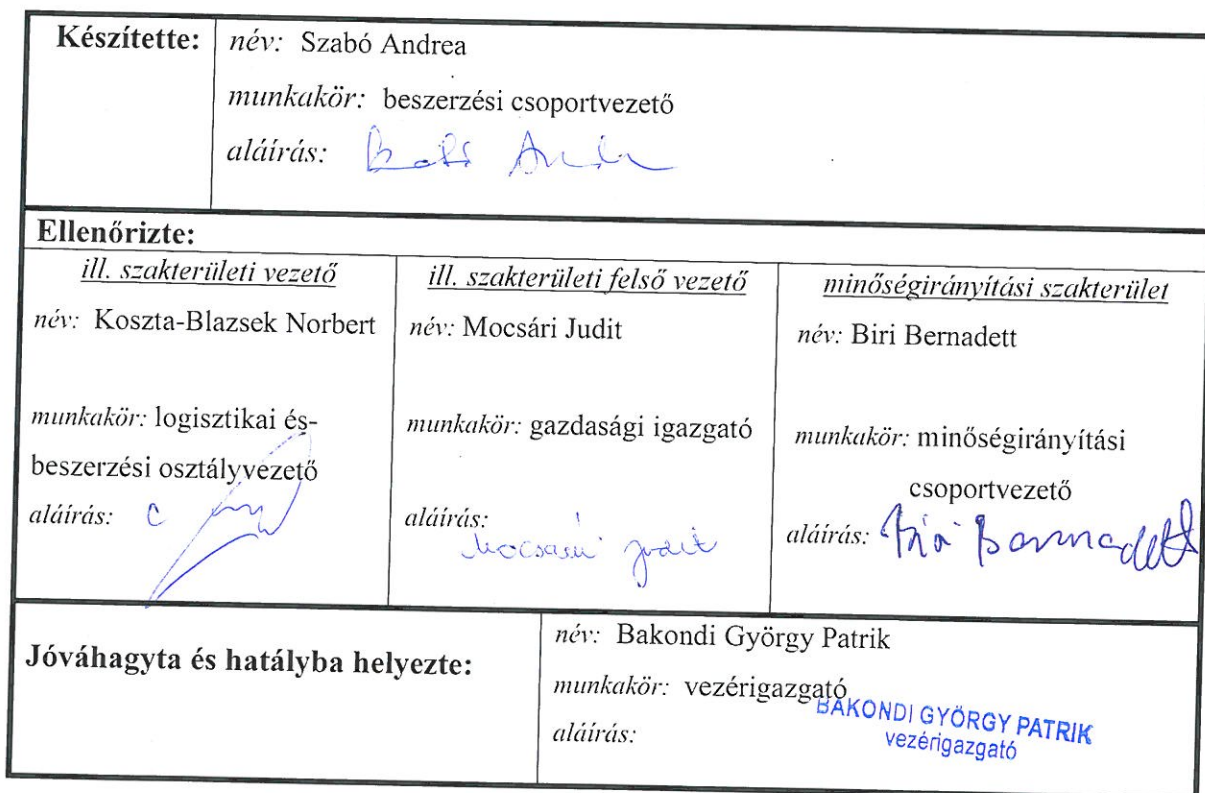 Készítette:
név: Szabó Andrea
munkakör: beszerzési csoportvezető
aláírás:
Ellenőrizte:
ill. szakterületi vezető
név: Koszta-Blazsek Norbert
munkakör: logisztikai és-
beszerzési osztályvezető
aláírás:
ill. szakterületi felső vezető
név: Mocsári Judit
munkakör: gazdasági igazgató
aláírás:
Mocsári Judit
minőségirányítási szakterület
név: Biri Bernadett
munkakör: minőségirányítási
csoportvezető
aláírás: Biri Bernadett
Jóváhagyta és hatályba helyezte:
név: Bakondi György Patrik
munkakör: vezérigazgató
aláírás:
BAKONDI GYÖRGY PATRIK
vezérigazgató